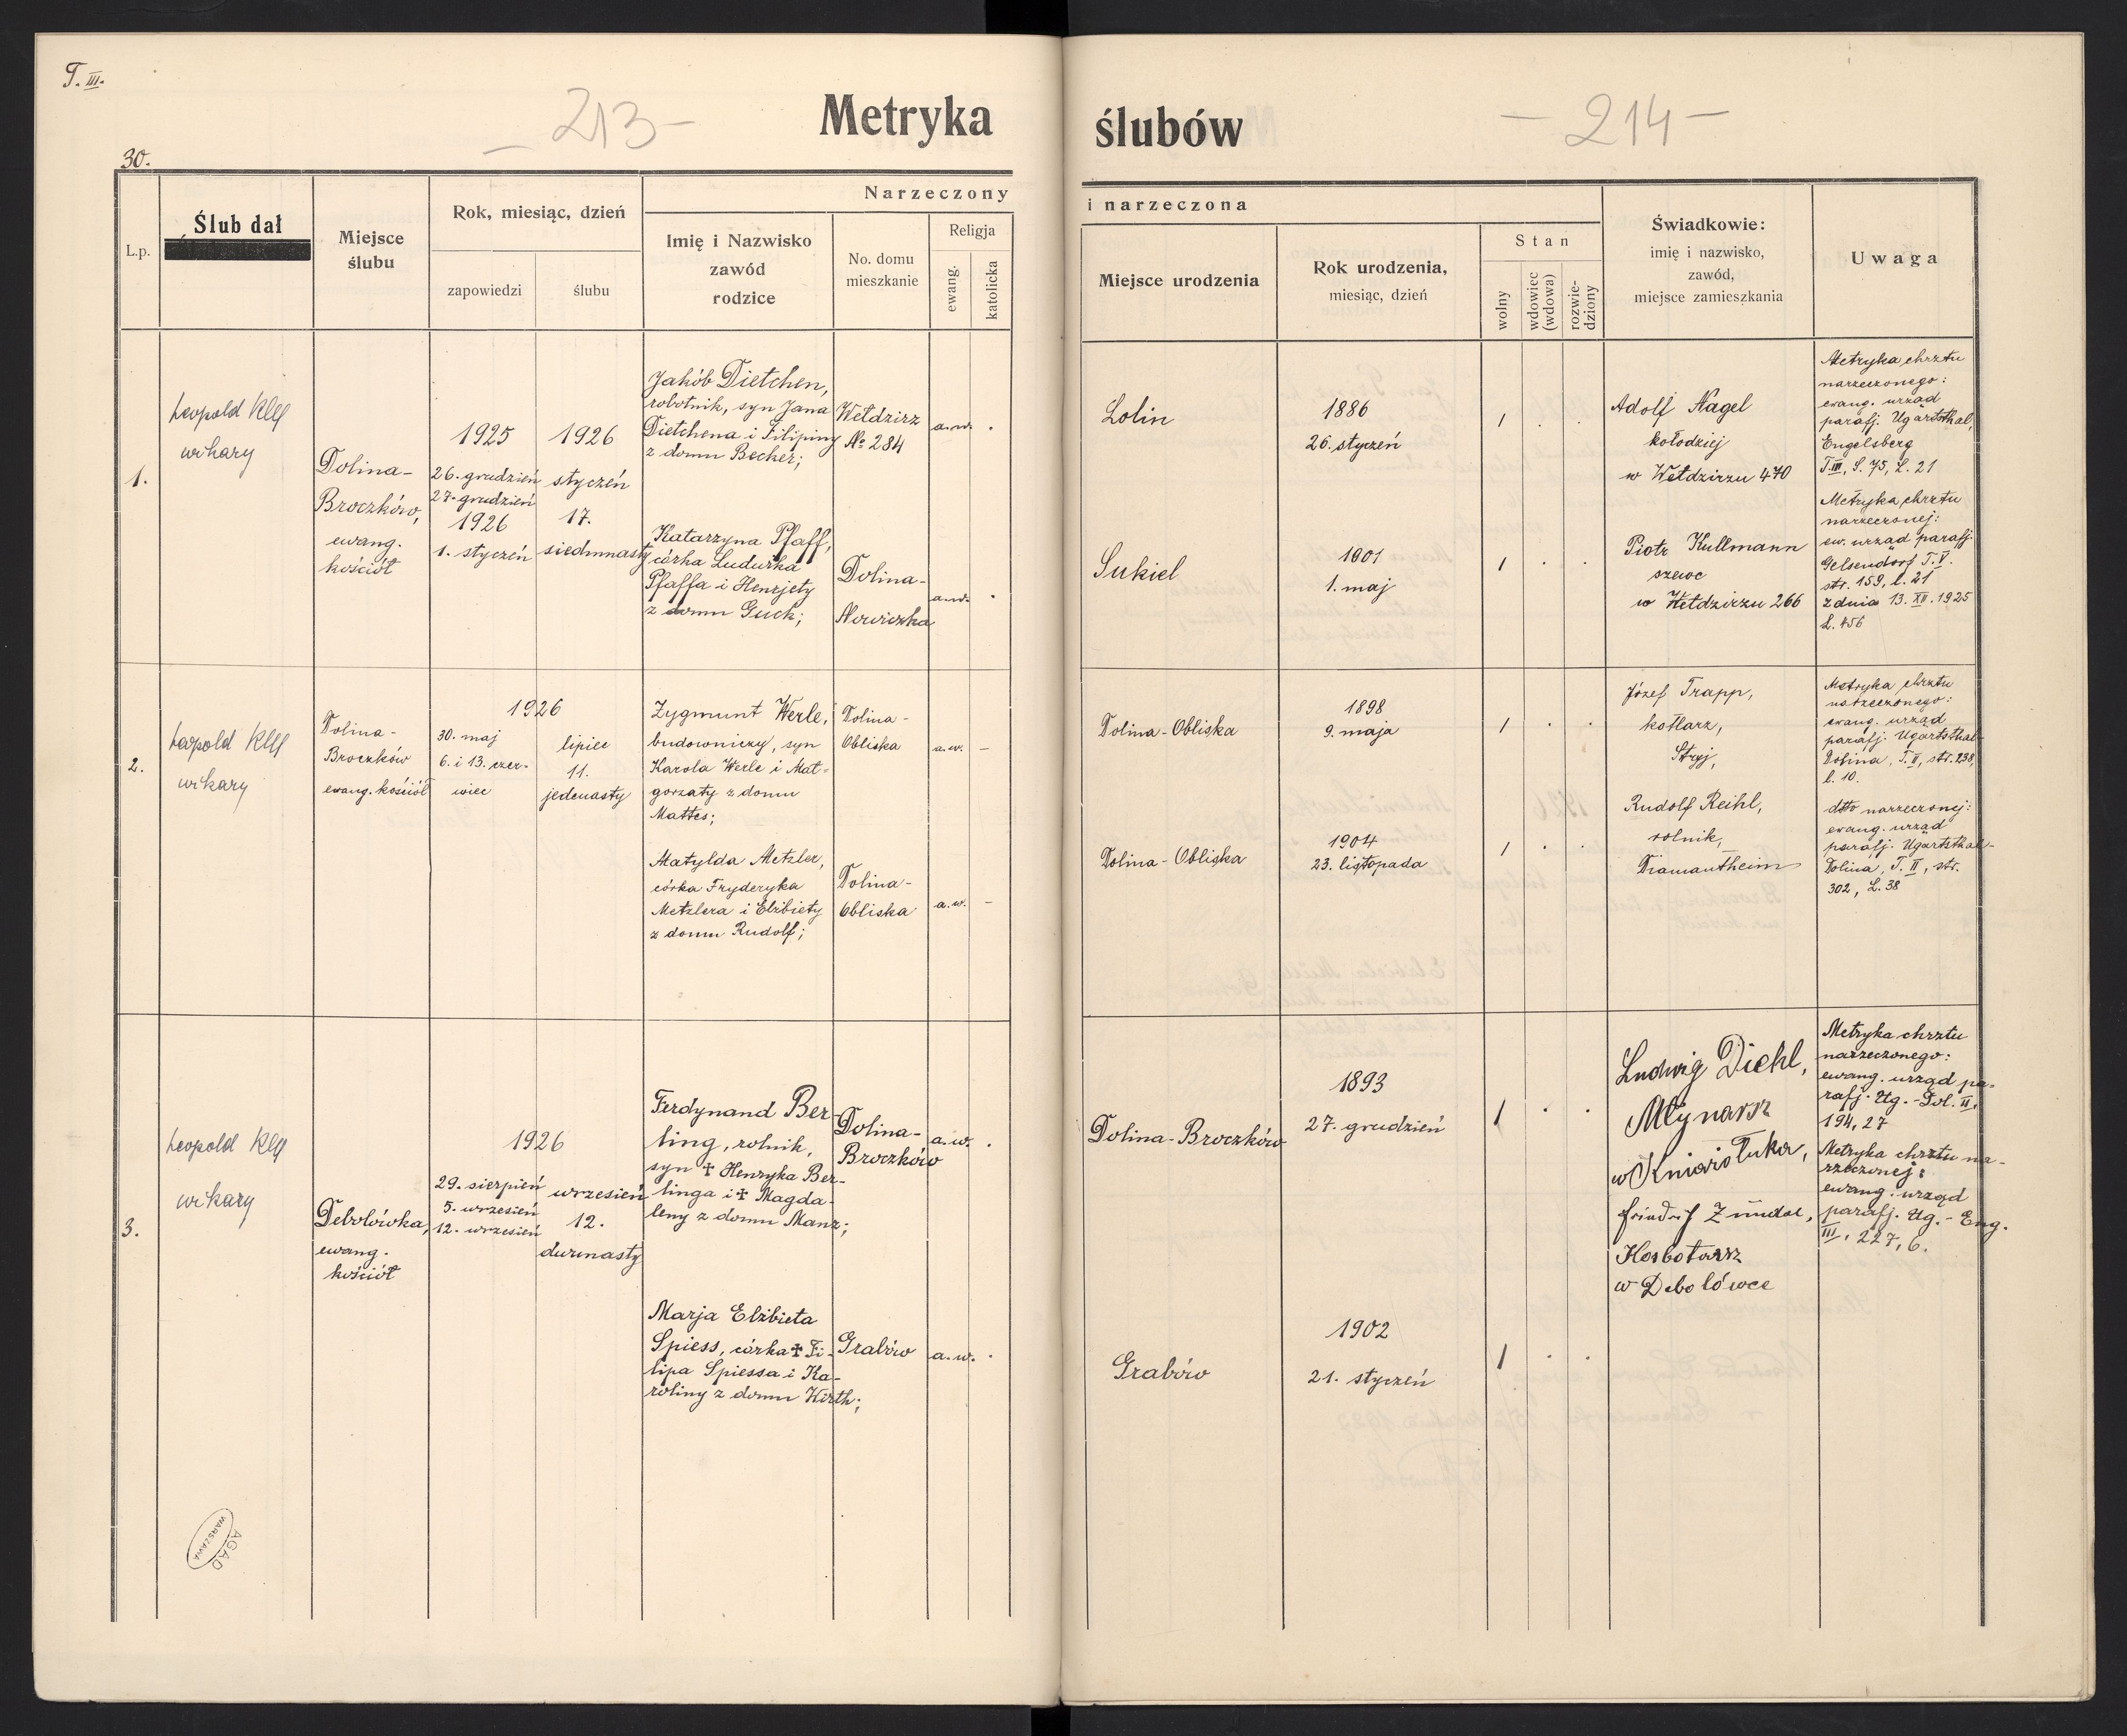 T. III.
— 213 —
Metryka
30.
L.p.
Ślub dał
Miejsce
ślubu
Rok, miesiąc, dzień
zapowiedzi
ślubu
Narzeczony
Imię i Nazwisko
zawód
rodzice
No. domu
mieszkanie
Religja
ewang.
katolicka
1.
Leopold
wikary
Dolina-
Broczków,
ewang.
kościół
1925
26. grudzień
27. grudzień
1926
1. styczeń
1926
styczeń
17.
siedmnasty
Jakób Dietchen,
robotnik, syn Jana
Dietchena i Filipiny
z domu Becker;
Wełdzirz
№ 284
a.w. .
Katarzyna Pfaff,
córka Ludwika
Pfaffa i Henrjety
z domu Guck;
Dolina-
Nowiczka
a.w. .
2.
Leopold
wikary
Dolina-
Broczków
ewang. kościół
1926
30. maj
6. i 13. czer-
wiec
lipiec
11.
jedenasty
Zygmunt Werle,
budowniczy, syn
Karola Werle i Mał-
gorzaty z domu
Mattes;
Dolina-
Obliska
a.w. —
Matylda Metzler,
córka Fryderyka
Metzlera i Elżbiety
z domu Rudolf;
Dolina-
Obliska
a.w. —
3.
Leopold
wikary
Debolówka,
ewang.
kościół
1926
29. sierpień
5. wrzesień
12. wrzesień
wrzesień
12.
dwunasty
Ferdynand Ber-
ling, rolnik,
syn ✝ Henryka Ber-
linga i ✝ Magda-
leny z domu Manz;
Dolina-
Broczków
a.w. .
Marja Elżbieta
Spiess, córka ✝ Fi-
lipa Spiessa i Ka-
roliny z domu Kirth;
Grabów
a.w. .
AGAD
WARSZAWA
ślubów
— 214 —
i narzeczona
Miejsce urodzenia
Rok urodzenia,
miesiąc, dzień
Stan
wolny
wdowiec
(wdowa)
rozwie-
dziony
Świadkowie:
imię i nazwisko,
zawód,
miejsce zamieszkania
Uwaga
Lolin
1886
26. styczeń
1 . .
Sukiel
1901
1. maj
1 . .
Adolf Nagel
kołodziej
w Wełdzirzu 470
Piotr Kullmann
szewc
w Wełdzirzu 266
Metryka chrztu
narzeczonego:
ewang. urząd
parafj. Ugartsthal,
Engelsberg
T. III, S. 75, L. 21
Metryka chrztu
narzeczonej:
ew. urząd parafj.
Gelsendorf T. V.
str. 159, l. 21
z dnia 13. XII. 1925
L. 456
Dolina-Obliska
1898
9. maja
1 . .
Dolina-Obliska
1904
23. listopada
1 . .
Józef Trapp,
kotlarz,
Stryj,
Rudolf Reihl,
rolnik,
Diamantheim
Metryka chrztu
narzeczonego:
ewang. urząd
parafj. Ugartsthal-
Dolina, T. II, str. 238,
l. 10.
dtto narzeczonej:
ewang. urząd
parafj. Ugartsthal-
Dolina, T. II, str.
302, L. 38
Dolina-Broczków
1893
27. grudzień
1 . .
Grabów
1902
21. styczeń
1 . .
Ludwig Diehl,
Młynarz
w Kniaziołuka,
w Debolówce
Metryka chrztu
narzeczonego:
ewang. urząd pa-
rafj. Ug.-Dol. II,
194, 27
Metryka chrztu na-
rzeczonej:
ewang. urząd
parafj. Ug.-Eng.
III, 227, 6.